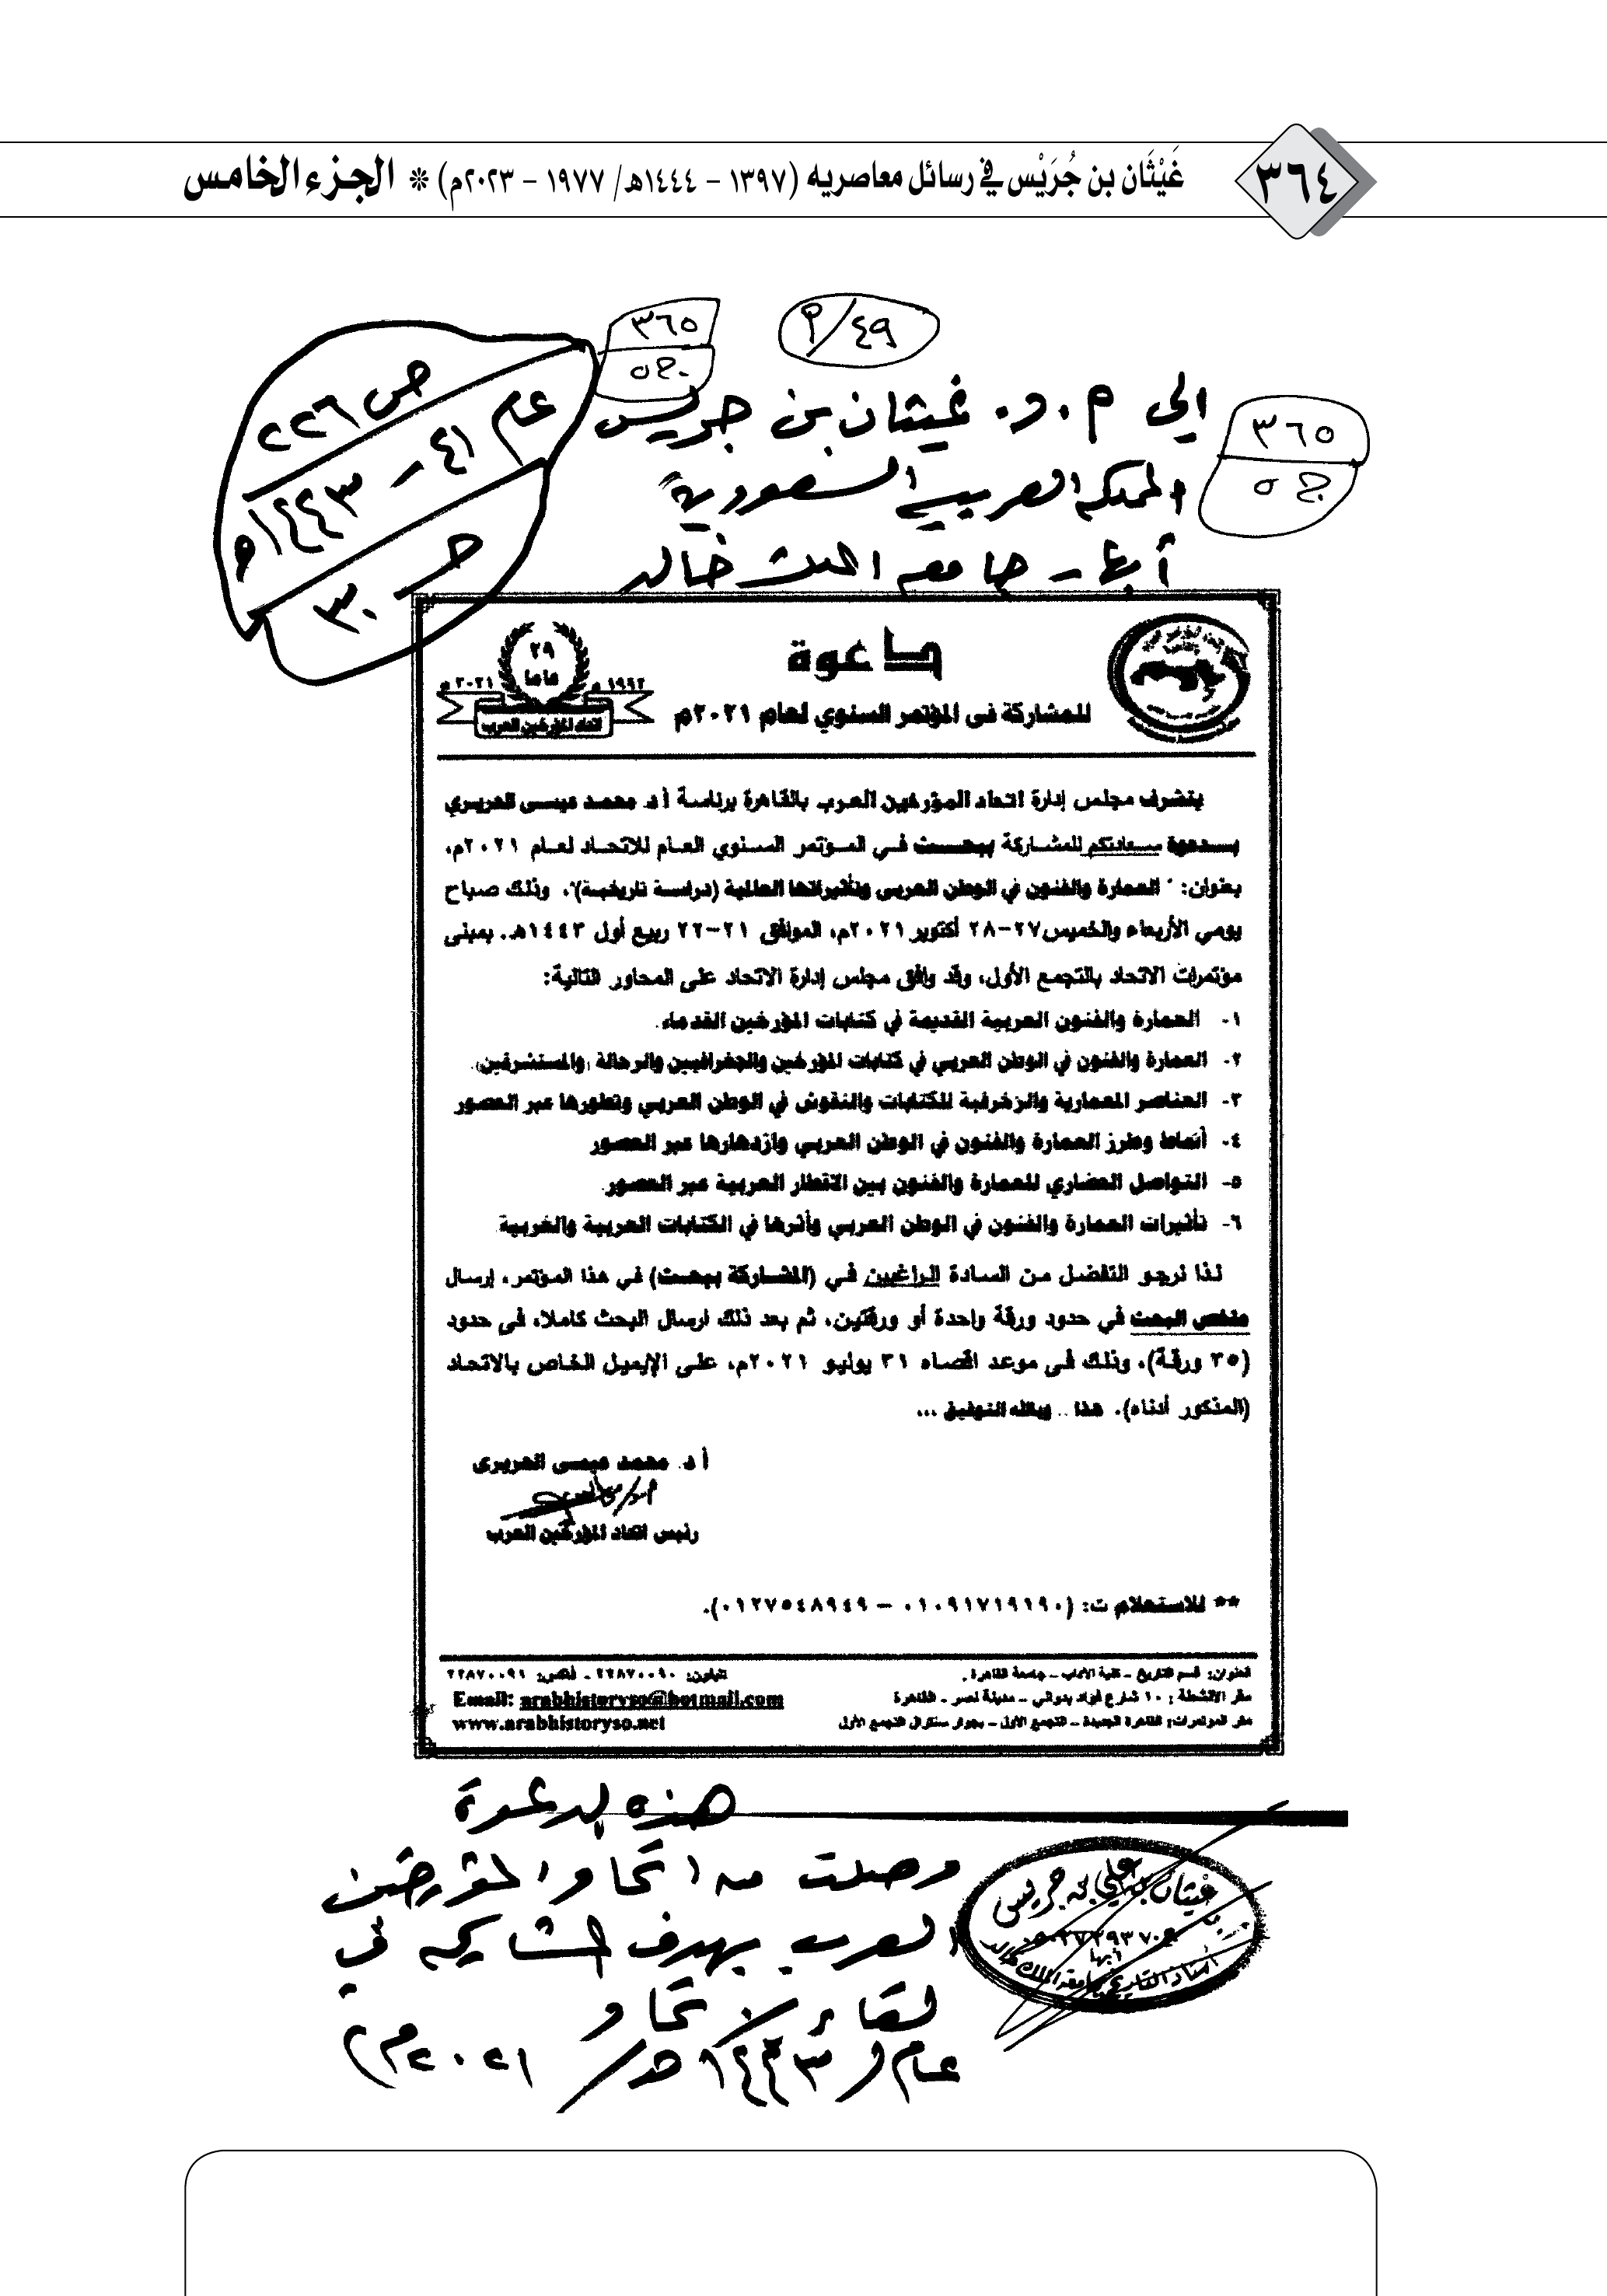 ٣٦٤
غَيْثَان بن جُرَيْس في رسائل معاصريه (١٣٩٧ – ١٤٤٤هـ/ ١٩٧٧ – ٢٠٢٣م) * الجزء الخامس
٤٩/م
٣٦٥
ج٥
٣٦٥
ج٥
ص ٢٢٦
عام ٤١ – ١٤٤٣هـ
ج ٣٠
إلى م.د. غيثان بن جريس
المملكة العربية السعودية
أبها – جامعة الملك خالد
دعوة
للمشاركة فى المؤتمر السنوي لعام ٢٠٢١م
٢٩
عاما
١٩٩٢م
٢٠٢١م
اتحاد المؤرخين العرب
يتشرف مجلس إدارة اتحاد المؤرخين العرب بالقاهرة برئاسة أ.د. محمد عيسى الحريري
بــدعوة سعادتكم للمشاركة ببحــث فــي المــؤتمر السنوي العام للاتحاد لعــام ٢٠٢١م،
بعنوان: "العمارة والفنون في الوطن العربي وتأثيراتها العالمية (دراسة تاريخية)"، وذلك صباح
يومي الأربعاء والخميس ٢٧-٢٨ أكتوبر ٢٠٢١م، الموافق ٢١-٢٢ ربيع أول ١٤٤٣هـ. بمبنى
مؤتمرات الاتحاد بالتجمع الأول، وقد وافق مجلس إدارة الاتحاد على المحاور التالية:
١- العمارة والفنون العربية القديمة في كتابات المؤرخين القدماء.
٢- العمارة والفنون في الوطن العربي في كتابات المؤرخين والجغرافيين والرحالة (والمستشرقين).
٣- العناصر المعمارية والزخرفية للكتابات والنقوش في الوطن العربي وتطورها عبر العصور
٤- أنماط وطرز العمارة والفنون في الوطن العربي وازدهارها عبر العصور
٥- التواصل الحضاري للعمارة والفنون بين الأقطار العربية عبر العصور.
٦- تأثيرات العمارة والفنون في الوطن العربي وأثرها في الكتابات العربية والغربية
لذا نرجو التفضل من السادة الراغبين في (المشاركة ببحث) في هذا المؤتمر، إرسال
ملخص البحث في حدود ورقة واحدة أو ورقتين، ثم بعد ذلك ارسال البحث كاملا، فى حدود
(٣٥ ورقة)، وذلك فى موعد اقصاه ٣١ يوليو ٢٠٢١م، على الإيميل الخاص بالاتحاد
(المذكور أدناه). هذا .. وبالله التوفيق ...
أ.د. محمد عيسى الحريرى
رئيس اتحاد المؤرخين العرب
** للاستعلام ت: (٠١٠٩١٧١٩١٩٠ – ٠١٢٧٥٤٨٩٤٩).
العنوان: قسم التاريخ – كلية الآداب – جامعة القاهرة.
تليفون: ٢٢٨٧٠٠٩٠ - فاكس: ٢٢٨٧٠٠٩١
مقر الأنشطة: ١٠ شارع فؤاد بدواني – مدينة نصر - القاهرة
Email: arabhistoryso@hotmail.com
مقر المؤتمرات: القاهرة الجديدة – التجمع الأول – بجوار سنترال التجمع الأول
www.arabhistoryso.net
هذه الدعوة
وصلت من اتحاد المؤرخين
العرب بهدف المشاركة في
لقاء الاتحاد
عام (١٤٤٣هـ/ ٢٠٢١م)
غيثان بن علي بن جريس
أبها
أستاذ التاريخ بجامعة الملك خالد